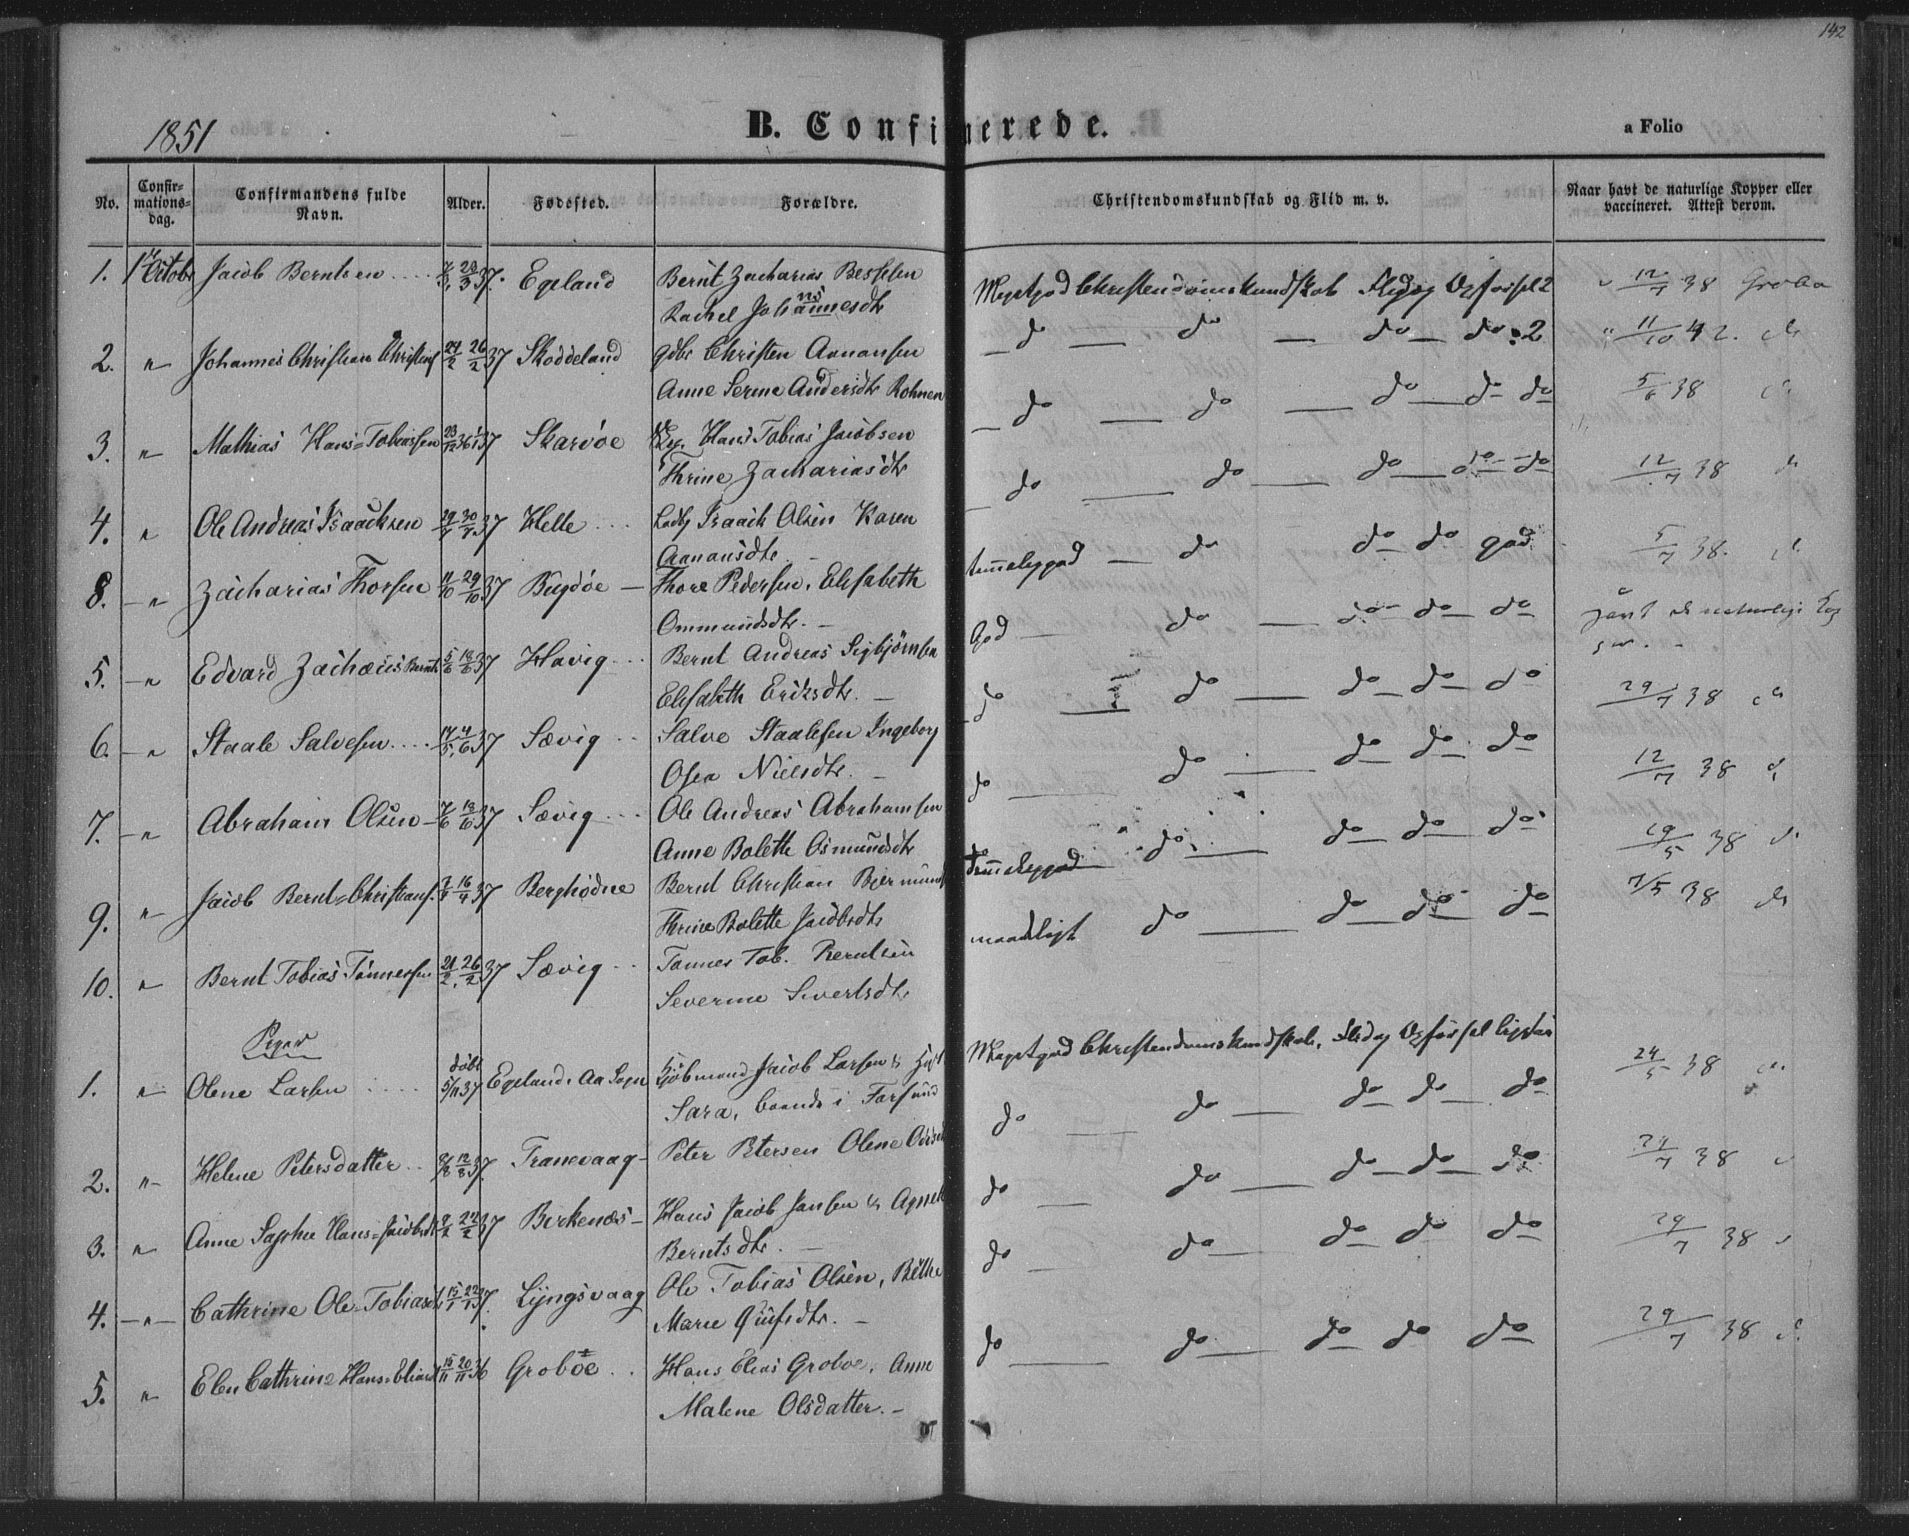 142
1851
B. Confirmerede.
a Folio
No.
Confir-
mations-
dag.
Confirmandens fulde
Navn.
Alder.
Fødested.
Forældre.
Christendomskundskab og Flid m. v.
Naar havt de naturlige Kopper eller
vaccineret. Attest derom.
1. 1 Octobr Jacob Berntsen 37. Egeland Bernt Zacharias Bessesen
Rachel Johannesdtr
Megetgod Christendomskundskab Flid og Opførsel 2 12/7 38 Groboe
2. " Johannes Christian Christens 24/2 26/2 37 Skoddeland Gdbr Christen Aanansen
Anne Serine Andersdtr Rohnen
do do do do 2 " 11/10 42. do
3. " Mathias Hans=Tobiassen 23/12 36 37 Skarvøe Hans Tobias Jacobsen
Thrine Zachariasdtr
do do do do do 5/6 38 do
4. " Ole Andreas Isaacksen 37 Helle Isaack Olsen Karen
Aanansdtr.
do do do do do 12/7 38 do
8. " Zacharias Thorsen 11/10 29/10 37 Bugdøe Thore Pedersen. Elisabeth
Ommundsdtr.
temeligod do do do god 5/7 38. do
5. " Edvard Zachæus Bernts 5/6 18/6 37 Havig Bernt Andreas Sigbjørnsen
Elisabeth Eriksdtr.
God do do do do havt de naturlige Kop
per.
6. " Staale Salvesen 14/5 4/6 37 Sævig Salve Staalesen Ingeborg
Osea Nielsdtr.
do do do do do 29/7 38 do
7. " Abraham Olsen 37 Sævig Ole Andreas Abrahamsen
Anne Bolette Osmundsdtr
do do do do do 12/7 38 do
9. " Jacob Bernt=Christians. 7/4 16/4 37 Berghødne Bernt Christian Bjermunds
Thrine Bolette Jacobsdtr
temeligod do do do do 19/5 38 do
10. " Bernt Tobias Tønnessen 21/2 26/2 37 Sævig Tønnes Tob. Berntsen
Severine Sivertsdtr
maadeligt do do do do 7/5 38 do
Piger
1. " Olene Larsen døbt 5/11 37 Egeland. Aa Sogn Kjøbmand Jacob Larsen &
Sara, boende i Farsund
Megetgod Christendomskundskab, Flid og Opførsel 24/5 38 do
2. " Helene Petersdatter 8/8 12/8 37. Tranevaag Peter Petersen Olene
do do do do do 29/7 38
3. " Anne Sophie Hans=Jacobsdt 37 Birkenæs Hans Jacob Jansen & Agnete
Berntsdtr.
do do do do do 29/7 38
4. " Cathrine Ole=Tobiasdt 15/1 22/1 37. Lyngsvaag Ole Tobias Olsen, Bithe
Marie
do do do do do 29/7 38
5. " Elen Cathrine Hans=Eliasdt 15/11 20/11 36 Groboe Hans Elias Groboe, Anne
Malene Olsdatter.
do do do do do 29/7 38 do